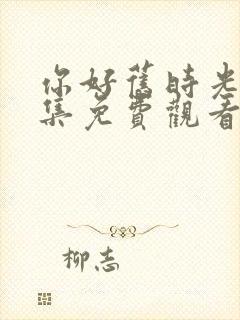 你好舊時光
集免費觀看
柳志